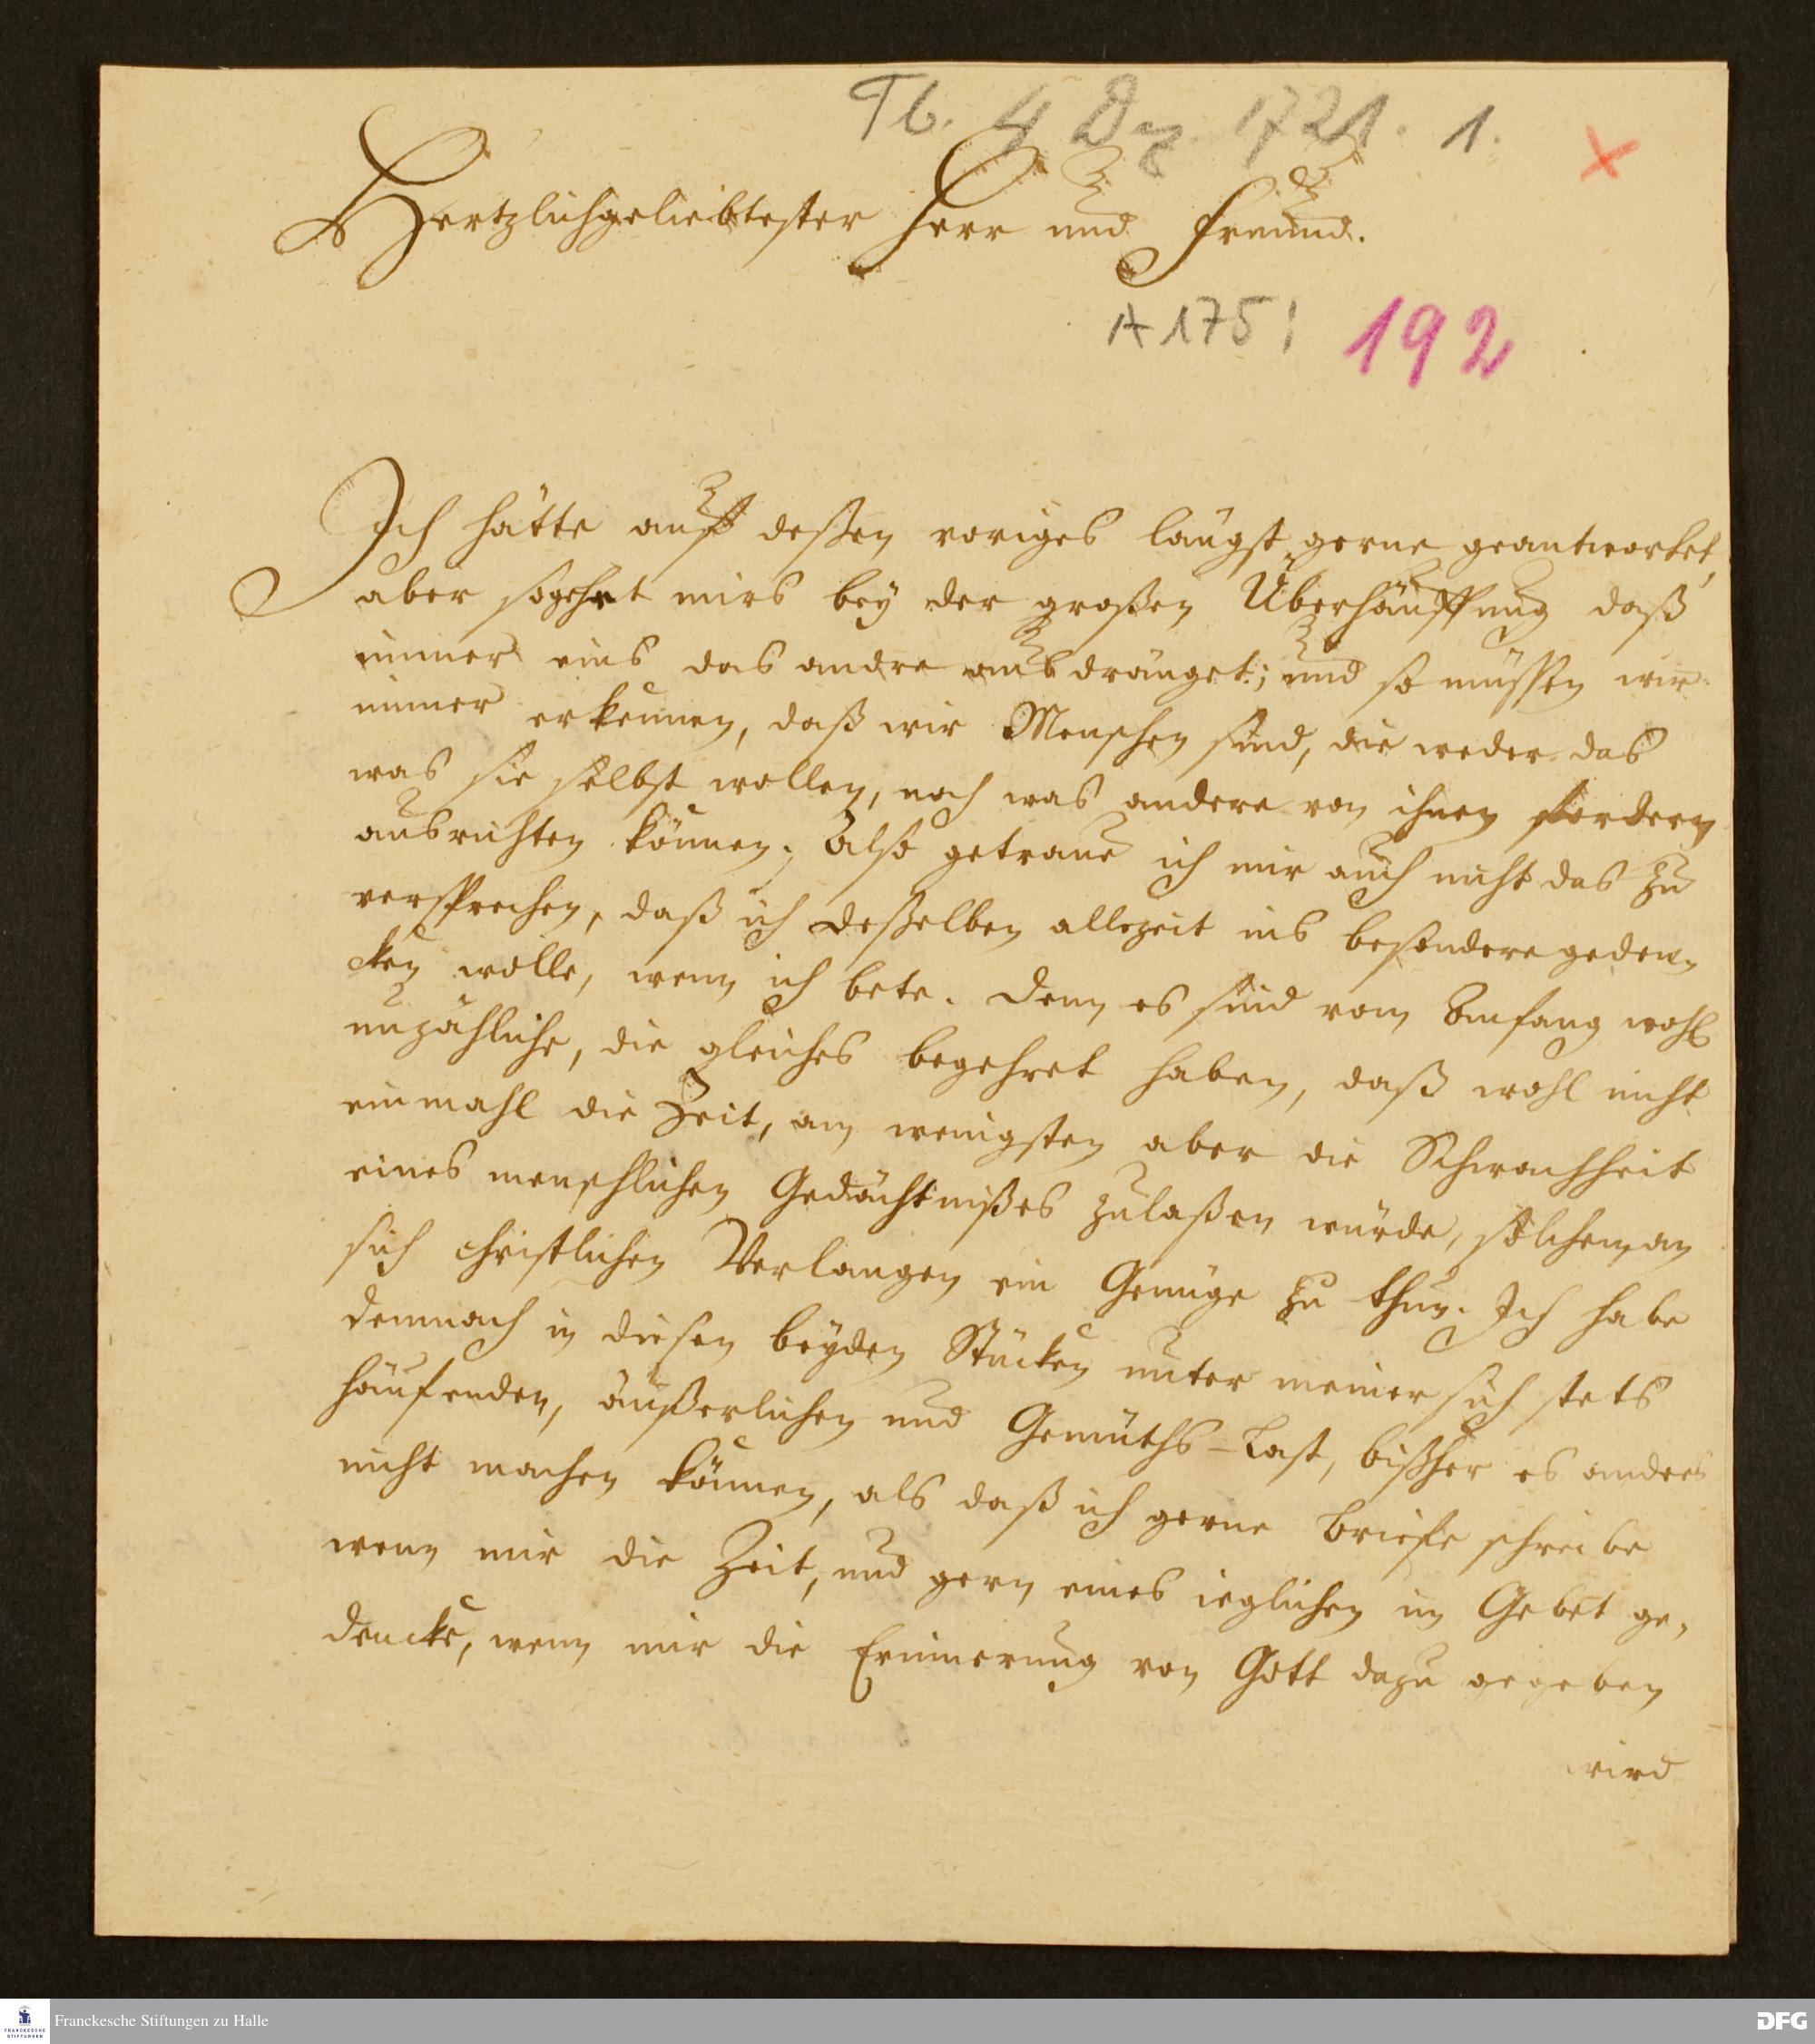 Tb. 4 Dez. 1721. 1.
Hertzlichgeliebtester Herr und Freund.
A 175 : 192
Ich hätte auff deßen voriges längst gerne geantwortet,
aber so gehet mirs bey der großen Überhäuffung daß
immer eins das andre ausdränget; und so müssen wir
immer erkennen, daß wir Menschen sind, die weder das
was sie selbst wollen, noch was andere von ihnen fordern
ausrichten können. Also getraue ich mir auch nicht das zu
versprechen, daß ich deßelben allezeit ins besondere geden-
cken wolle, wenn ich bete. Denn es sind vom Anfang wohl
unzähliche, die gleiches begehret haben, daß wohl nicht
einmahl die Zeit, am wenigsten aber die Schwachheit
eines menschlichen Gedächtnißes zulaßen würde, solchem an
sich christlichen Verlangen ein Genüge zu thun. Ich habe
demnach in diesen beyden Stücken unter meiner sich stets
häufenden, äußerlichen und Gemüths-Last, bißher es anders
nicht machen können, als daß ich gerne Briefe schreibe
wenn mir die Zeit, und gern eines ieglichen im Gebet ge-
dencke, wenn mir die Erinnerung von Gott dazu gegeben
wird
Franckesche Stiftungen zu Halle
FRANCKESCHE
STIFTUNGEN
DFG